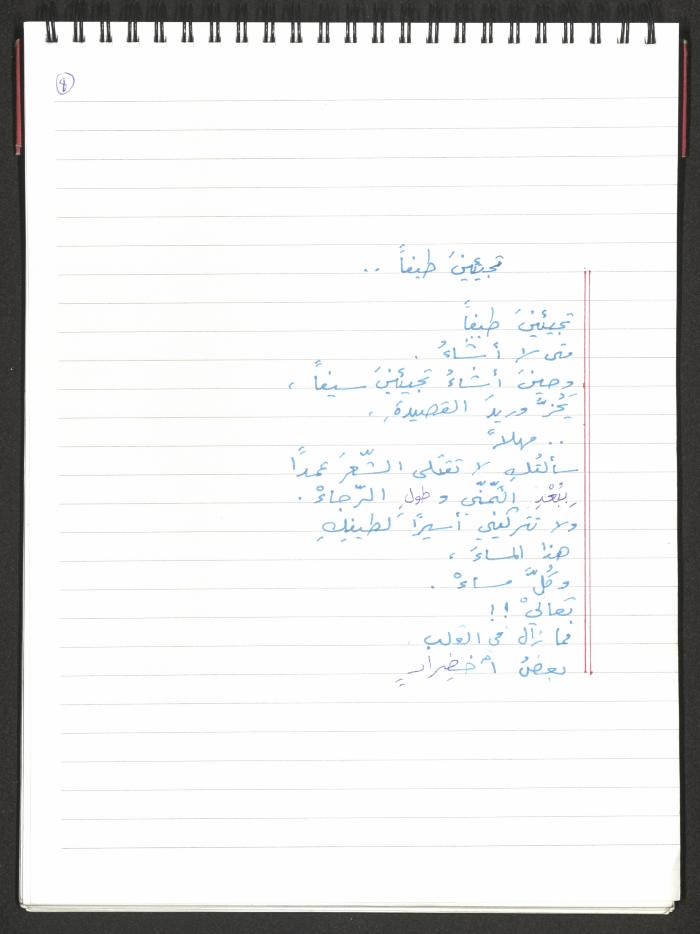 ٩
تجيئينَ طيفاً ..
تجيئينَ طيفاً
متى لا أشاءُ .
وحينَ أشاءُ تجيئينَ سيفاً ،
يَحُزّ وريدَ القصيدةِ ،
.. مهلاً
سألتُكِ لا تقتلى الشّعرَ عمدًا
بِبُعْدِ التّمنّي وطولِ الرّجاءْ .
ولا تتركيني أسيرًا لطيفِكِ
هذا المساءَ ،
وكُلَّ مساءْ .
تعاليْ !!
فما زال فى القلب
بعضُ اخضِرارِ